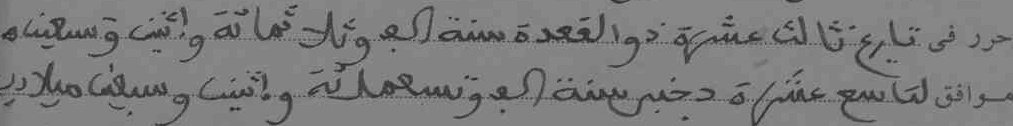 حرر فى تاريخ ثالث عشرة ذوالقعدة سنة الف وثلاثمائة واثنين وتسعين
موافق لتاسع عشرة دجنبر سنة الف وتسعمائة واثنين وسبعين ميلادي